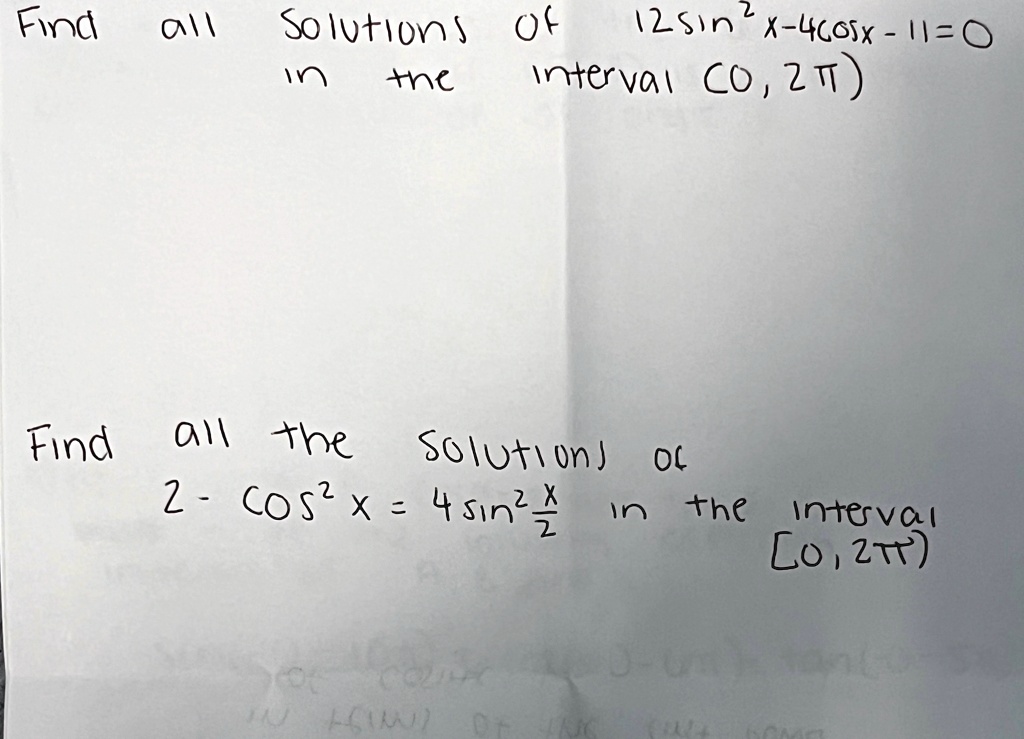 Find all solutions of 12 sin² x-4cosx - 11=0
in the interval (0, 2π)
Find all the solutions of
2 - cos² x = 4 sin² x/2 in the interval
[0, 2π)